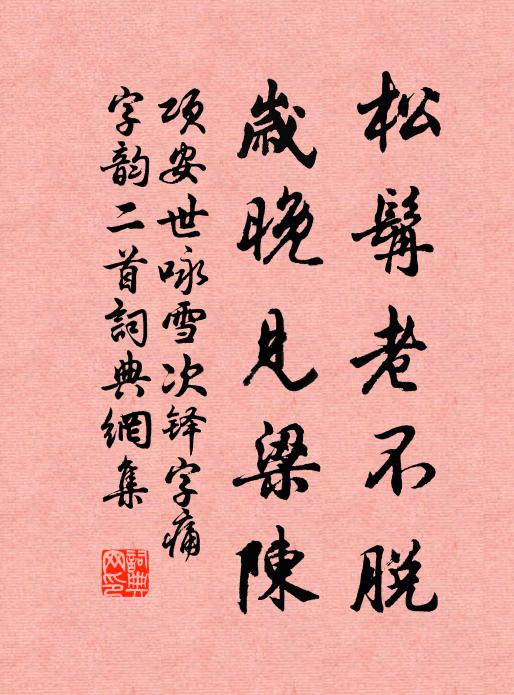 松髯老不脱
歲晚見梁陳
项安世咏雪次铎字痛
字韵二首詞典網集
詞典網印